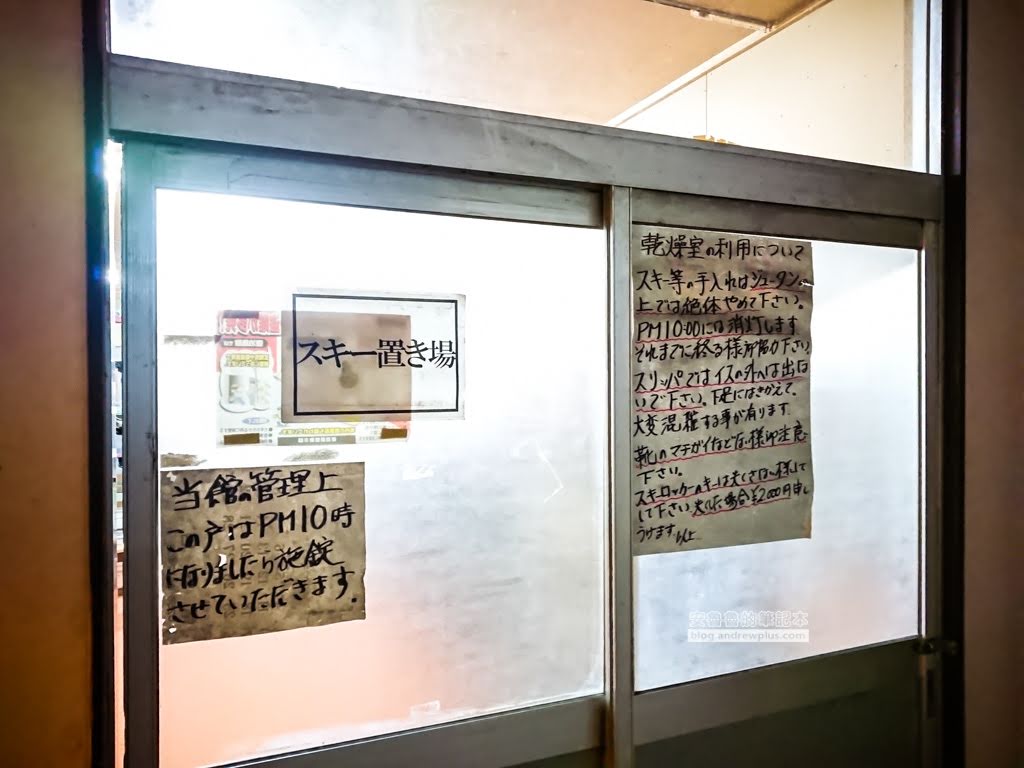 スキー置き場
当館の管理上
この戸はPM10時
になりましたら施錠
させていただきます.
乾燥室の利用について
スキ等の手入れはジュータンの
上では絶体やめて下さい。
PM10:00には消灯します
それまでに終る様
スリッパではイスの外へは出な
いで下さい。下足にはきかえて、
大変混雑する事が有ります.
靴のマチガイなどない様御注意
下さい。
スキーロッカーのキーは失くさない様にして
して下さい 失くした場合¥2,000円申し
うけます. 以上
安魯魯的筆記本
blog.andrewplus.com